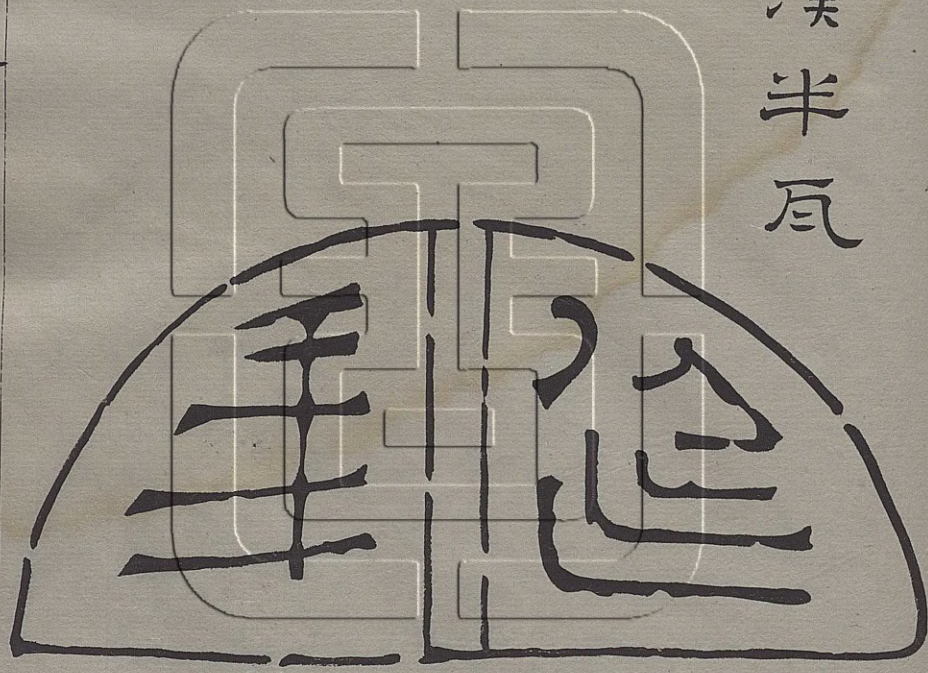 漢半瓦
延年